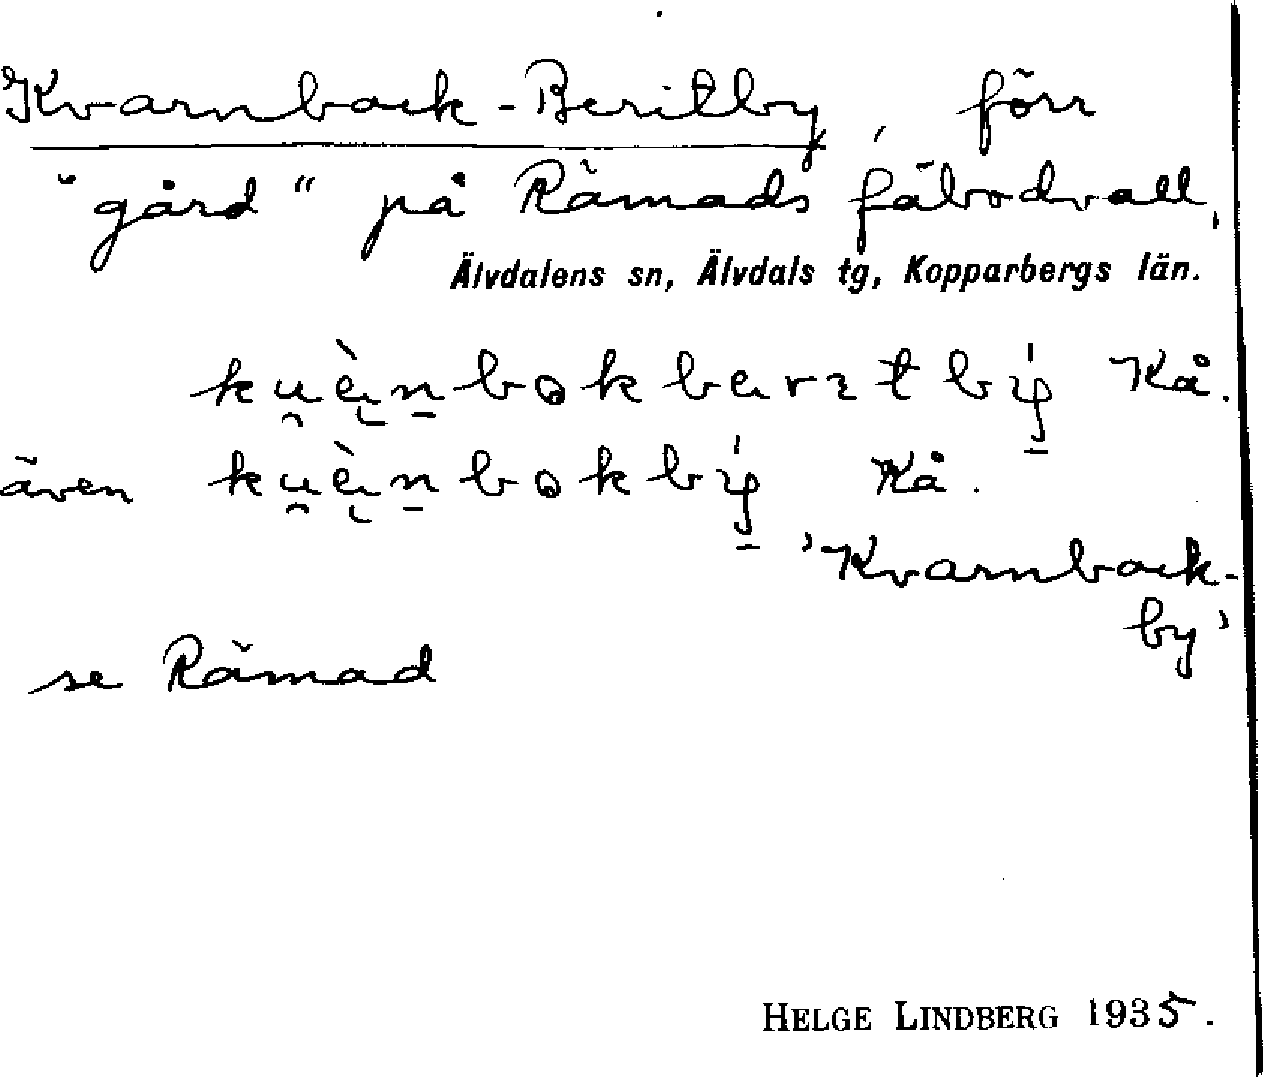 Kvarnback-Beritby, förr
"gård" på Rämads fäbodvall,
Älvdalens sn, Älvdals tg, Kopparbergs län.
ku̯ὲ̨n̠bokbęrɩtbẏ̠́ Kå.
även ku̯ὲ̨n̠bokbẏ̠́ Kå.
'Kvarnback-
by'
se Rämad
HELGE LINDBERG 1935.